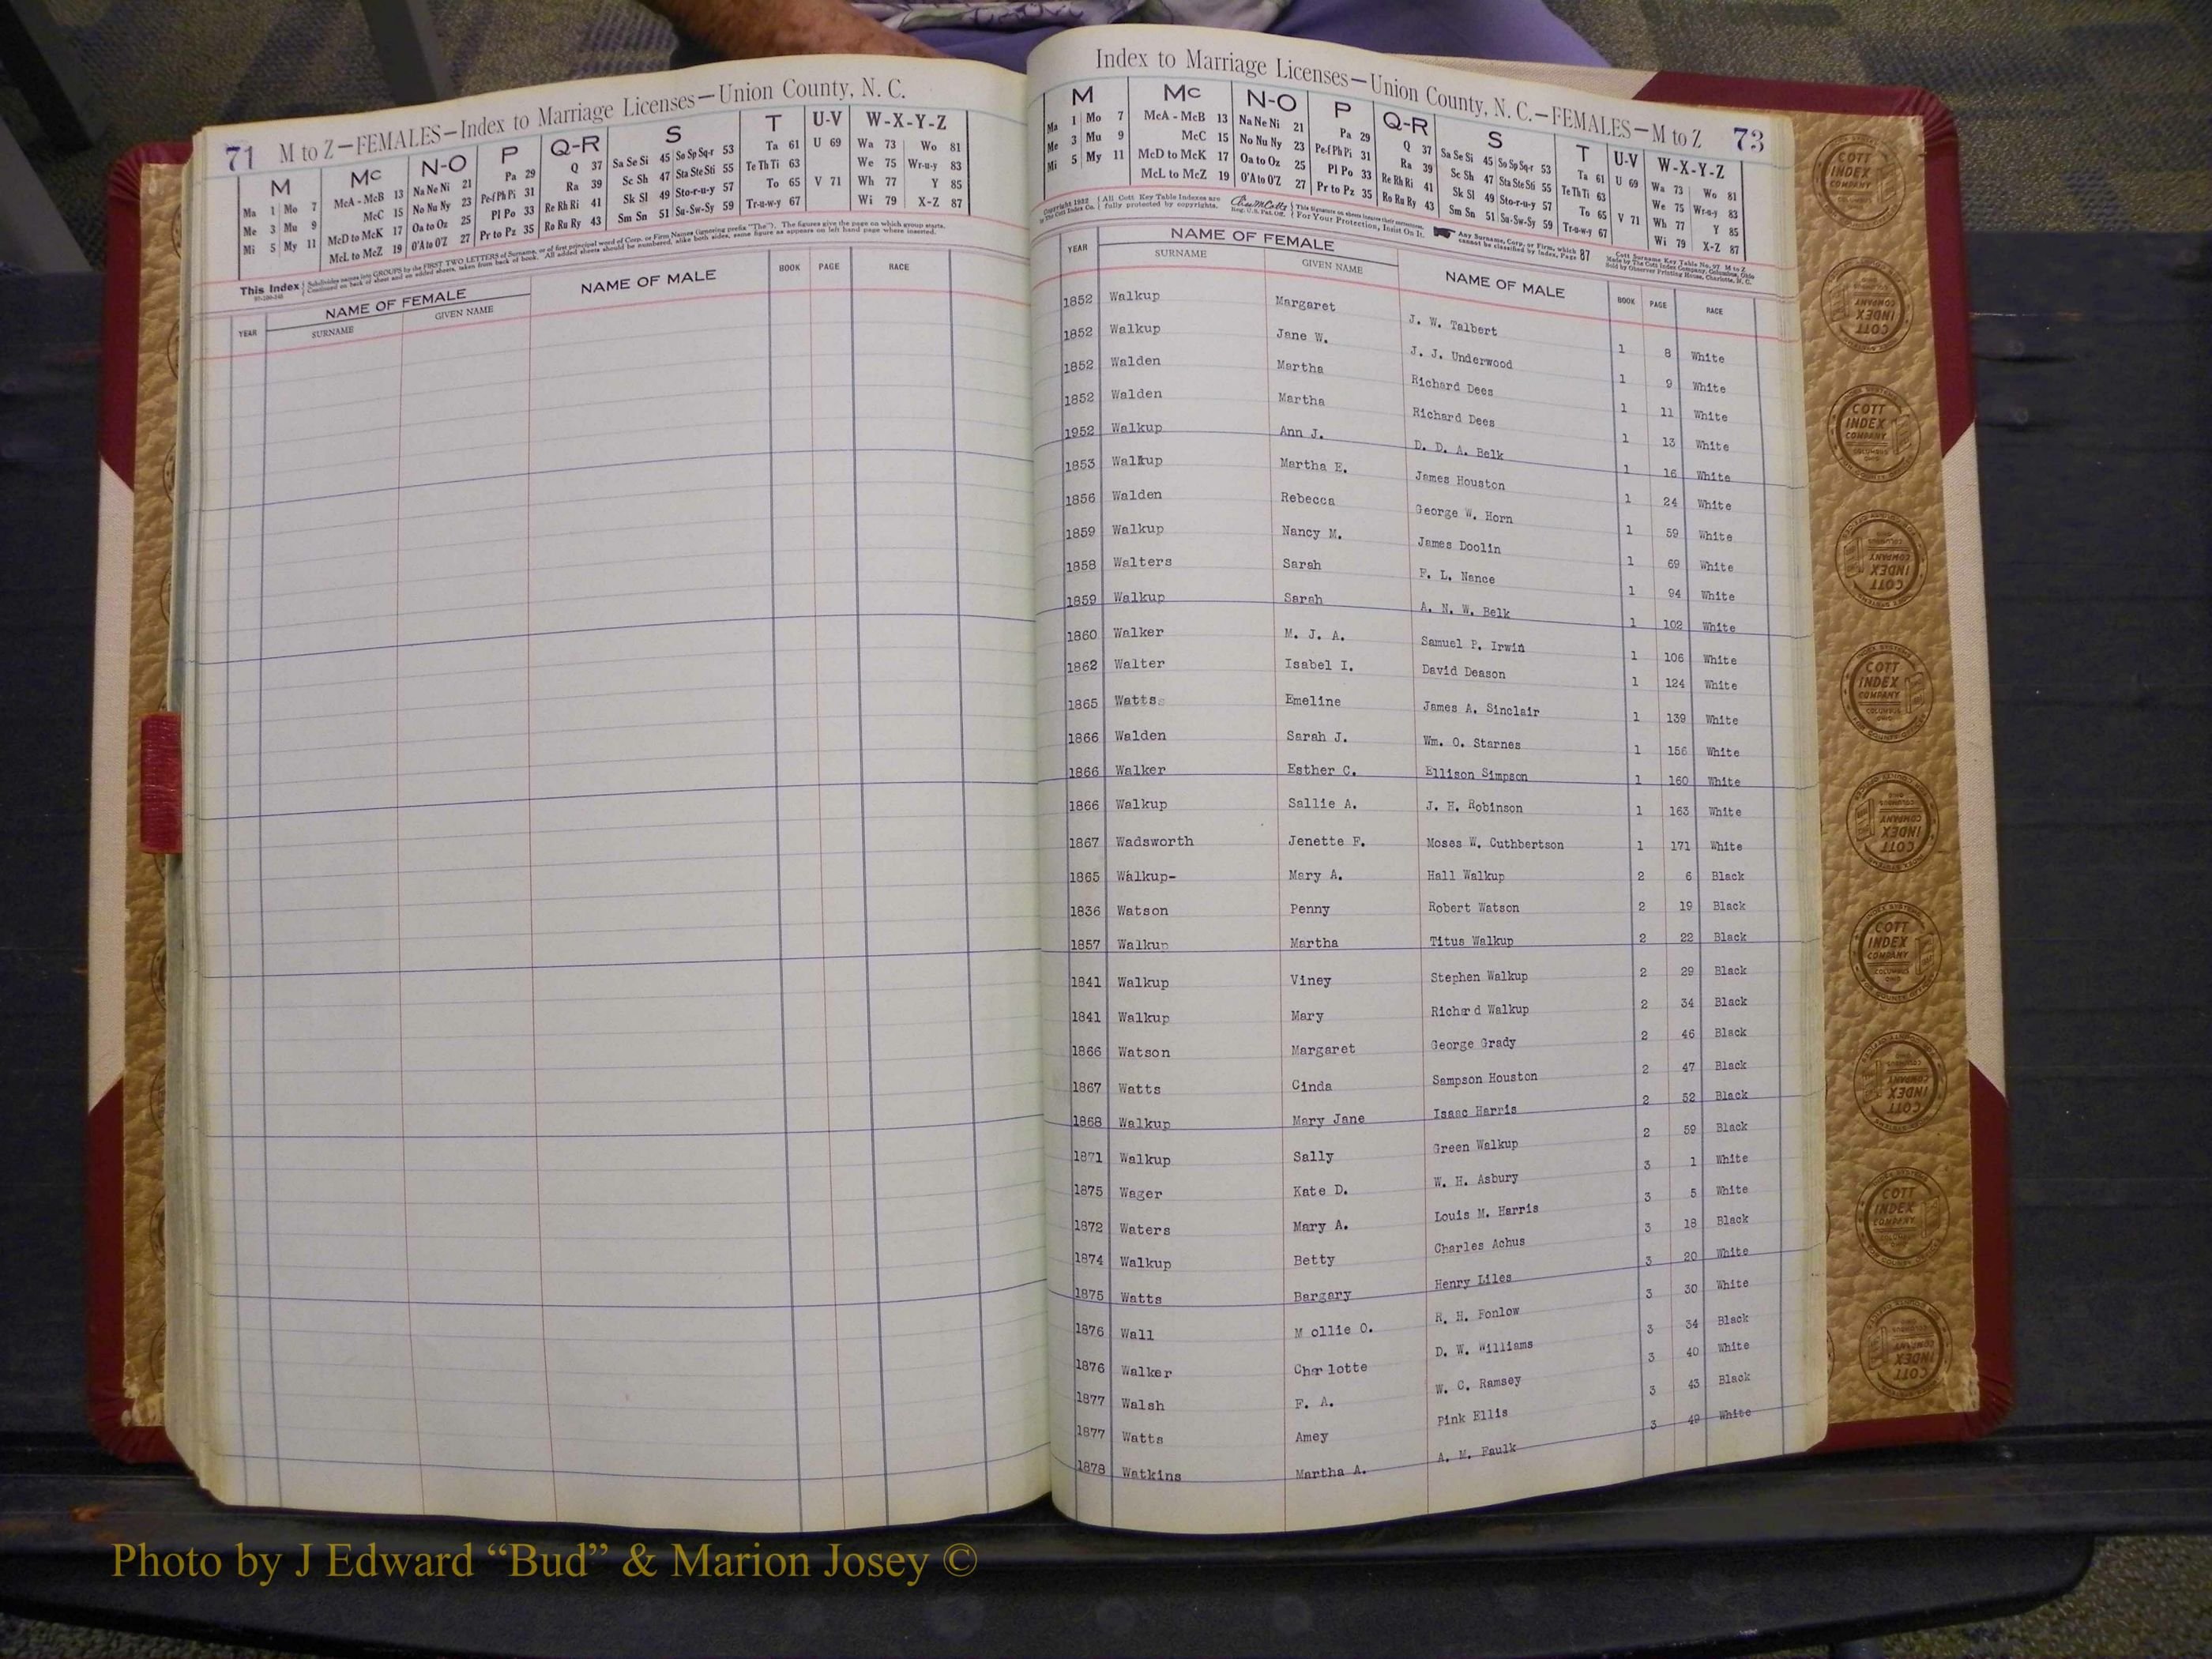 71 M to Z—FEMALES—Index to Marriage Licenses—Union County, N. C.
M Mc N-O P Q-R S T U-V W-X-Y-Z
Ma 1 Mo 7 McA - McB 13 Na Ne Ni 21 Pa 29 Q 37 Sa Se Si 45 So Sp Sq-r 53 Ta 61 U 69 Wa 73 Wo 81
Me 3 Mu 9 McC 15 No Nu Ny 23 Pe-f Ph Pi 31 Ra 39 Sc Sh 47 Sta Ste Sti 55 Te Th Ti 63 We 75 Wr-u-y 83
Mi 5 My 11 McD to McK 17 Oa to Oz 25 Pl Po 33 Re Rh Ri 41 Sk Sl 49 Sto-r-u-y 57 To 65 V 71 Wh 77 Y 85
McL to McZ 19 O'A to O'Z 27 Pr to Pz 35 Ro Ru Ry 43 Sm Sn 51 Su-Sw-Sy 59 Tr-u-w-y 67 Wi 79 X-Z 87
This Index Subdivides names into GROUPS by the FIRST TWO LETTERS of Surname, or of first principal word of Corp. or Firm Names (ignoring prefix "The"). The figures give the page on which group starts.
Continued on back of sheet and on added sheets, taken from back of book. All added sheets should be numbered, alike both sides, same figure as appears on left hand page where inserted.
YEAR NAME OF FEMALE NAME OF MALE BOOK PAGE RACE
SURNAME GIVEN NAME
Index to Marriage Licenses—Union County, N. C.—FEMALES—M to Z 73
M Mc N-O P Q-R S T U-V W-X-Y-Z
Ma 1 Mo 7 McA - McB 13 Na Ne Ni 21 Pa 29 Q 37 Sa Se Si 45 So Sp Sq-r 53 Ta 61 U 69 Wa 73 Wo 81
Me 3 Mu 9 McC 15 No Nu Ny 23 Pe-f Ph Pi 31 Ra 39 Sc Sh 47 Sta Ste Sti 55 Te Th Ti 63 We 75 Wr-u-y 83
Mi 5 My 11 McD to McK 17 Oa to Oz 25 Pl Po 33 Re Rh Ri 41 Sk Sl 49 Sto-r-u-y 57 To 65 V 71 Wh 77 Y 85
McL to McZ 19 O'A to O'Z 27 Pr to Pz 35 Ro Ru Ry 43 Sm Sn 51 Su-Sw-Sy 59 Tr-u-w-y 67 Wi 79 X-Z 87
Copyright 1922 by The Cott Index Co. All Cott Key Table Indexes are fully protected by copyrights. Reg. U.S. Pat. Off. For Your Protection, Insist On It. Any Surname, Corp. or Firm, which cannot be classified by Index, Page 87 Cott Surname Key Table No. 97 M to Z Made by The Cott Index Company, Columbus, Ohio Sold by Observer Printing House, Charlotte, N. C.
YEAR NAME OF FEMALE NAME OF MALE BOOK PAGE RACE
SURNAME GIVEN NAME
1852 Walkup Margaret J. W. Talbert 1 8 White
1852 Walkup Jane W. J. J. Underwood 1 9 White
1852 Walden Martha Richard Dees 1 11 White
1852 Walden Martha Richard Dees 1 13 White
1952 Walkup Ann J. D. D. A. Belk 1 16 White
1853 Walkup Martha E. James Houston 1 24 White
1856 Walden Rebecca George W. Horn 1 59 White
1859 Walkup Nancy M. James Doolin 1 69 White
1858 Walters Sarah F. L. Nance 1 94 White
1859 Walkup Sarah A. N. W. Belk 1 102 White
1860 Walker M. J. A. Samuel P. Irwin 1 106 White
1862 Walter Isabel I. David Deason 1 124 White
1865 Watts Emeline James A. Sinclair 1 139 White
1866 Walden Sarah J. Wm. O. Starnes 1 156 White
1866 Walker Esther C. Ellison Simpson 1 160 White
1866 Walkup Sallie A. J. H. Robinson 1 163 White
1867 Wadsworth Jenette F. Moses W. Cuthbertson 1 171 White
1865 Walkup- Mary A. Hall Walkup 2 6 Black
1836 Watson Penny Robert Watson 2 19 Black
1857 Walkup Martha Titus Walkup 2 22 Black
1841 Walkup Viney Stephen Walkup 2 29 Black
1841 Walkup Mary Richard Walkup 2 34 Black
1866 Watson Margaret George Grady 2 46 Black
1867 Watts Cinda Sampson Houston 2 47 Black
1868 Walkup Mary Jane Isaac Harris 2 52 Black
1871 Walkup Sally Green Walkup 2 59 Black
1875 Wager Kate D. W. H. Asbury 3 1 White
1872 Waters Mary A. Louis M. Harris 3 5 White
1874 Walkup Betty Charles Achus 3 18 Black
1875 Watts Bargary Henry Liles 3 20 White
1876 Wall M ollie O. R. H. Fonlow 3 30 White
1876 Walker Charlotte D. W. Williams 3 34 Black
1877 Walsh F. A. W. C. Ramsey 3 40 White
1877 Watts Amey Pink Ellis 3 43 Black
1878 Watkins Martha A. A. M. Faulk 3 49 White
COTT INDEX COMPANY COLUMBUS OHIO
Photo by J Edward “Bud” & Marion Josey ©